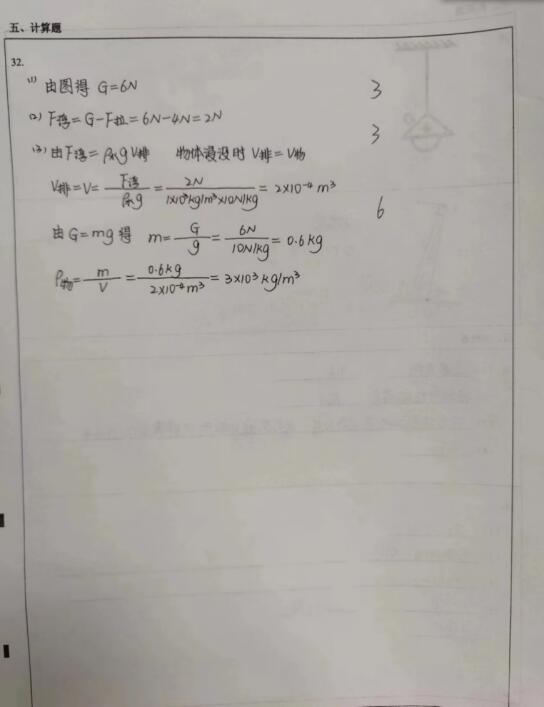 五、计算题
32.
(1) 由图得 G=6N 3
(2) F浮=G-F拉=6N-4N=2N 3
(3) 由F浮=ρ水gV排 物体浸没时 V排=V物
V排=V=F浮/ρ水g=2N/1×10³kg/m³×10N/kg=2×10⁻⁴m³ 6
由G=mg得 m=G/g=6N/10N/kg=0.6kg
ρ物=m/V=0.6kg/2×10⁻⁴m³=3×10³kg/m³